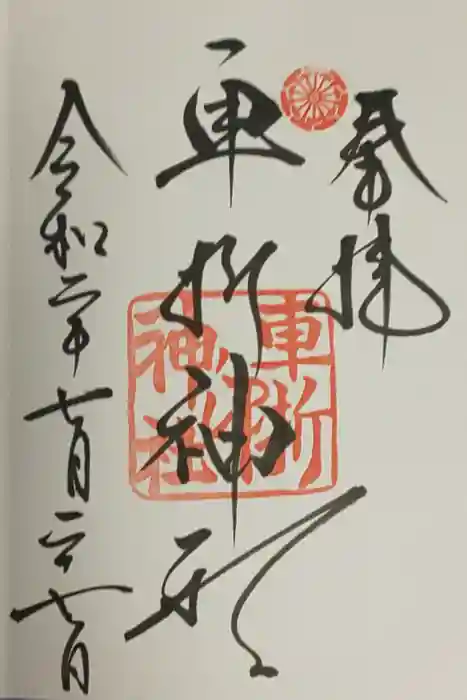 奉拝
車折神社
令和二年七月二十七日
車折
神社